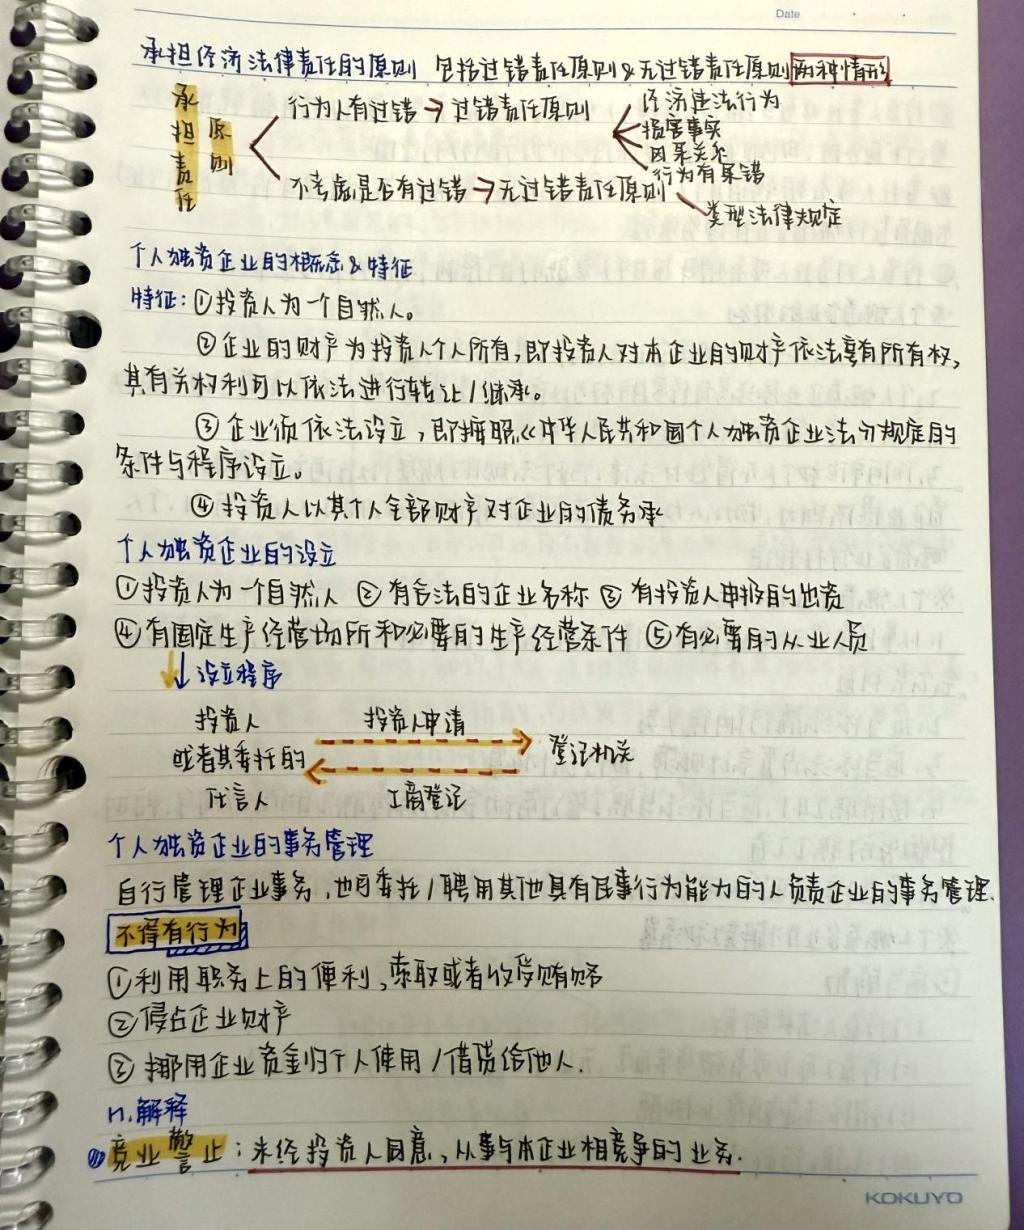 Date
承担经济法律责任的原则 包括过错责任原则&无过错责任原则两种情形
承担责任
原则
行为人有过错→过错责任原则
经济违法行为
损害事实
因果关系
行为有过错
不考虑是否有过错→无过错责任原则
类型法律规定
个人独资企业的概念&特征
特征:①投资人为一个自然人。
②企业的财产为投资人个人所有,即投资人对本企业的财产依法享有所有权,
其有关权利可以依法进行转让/继承。
③企业须依法设立,即按照《中华人民共和国个人独资企业法》规定的
条件与程序设立。
④投资人以其个人全部财产对企业的债务承
个人独资企业的设立
①投资人为一个自然人 ②有合法的企业名称 ③有投资人申报的出资
④有固定生产经营场所和必要的生产经营条件 ⑤有必要的从业人员
↓↓设立程序
投资人 投资人申请
或者其委托的 登记机关
代言人 工商登记
个人独资企业的事务管理
自行管理企业事务,也可委托/聘用其他具有民事行为能力的人负责企业的事务管理.
不得有行为
①利用职务上的便利,索取或者收受贿赂
②侵占企业财产
③挪用企业资金归个人使用/借贷给他人.
n.解释
竞业警止:未经投资人同意,从事与本企业相竞争的业务.
KOKUYO